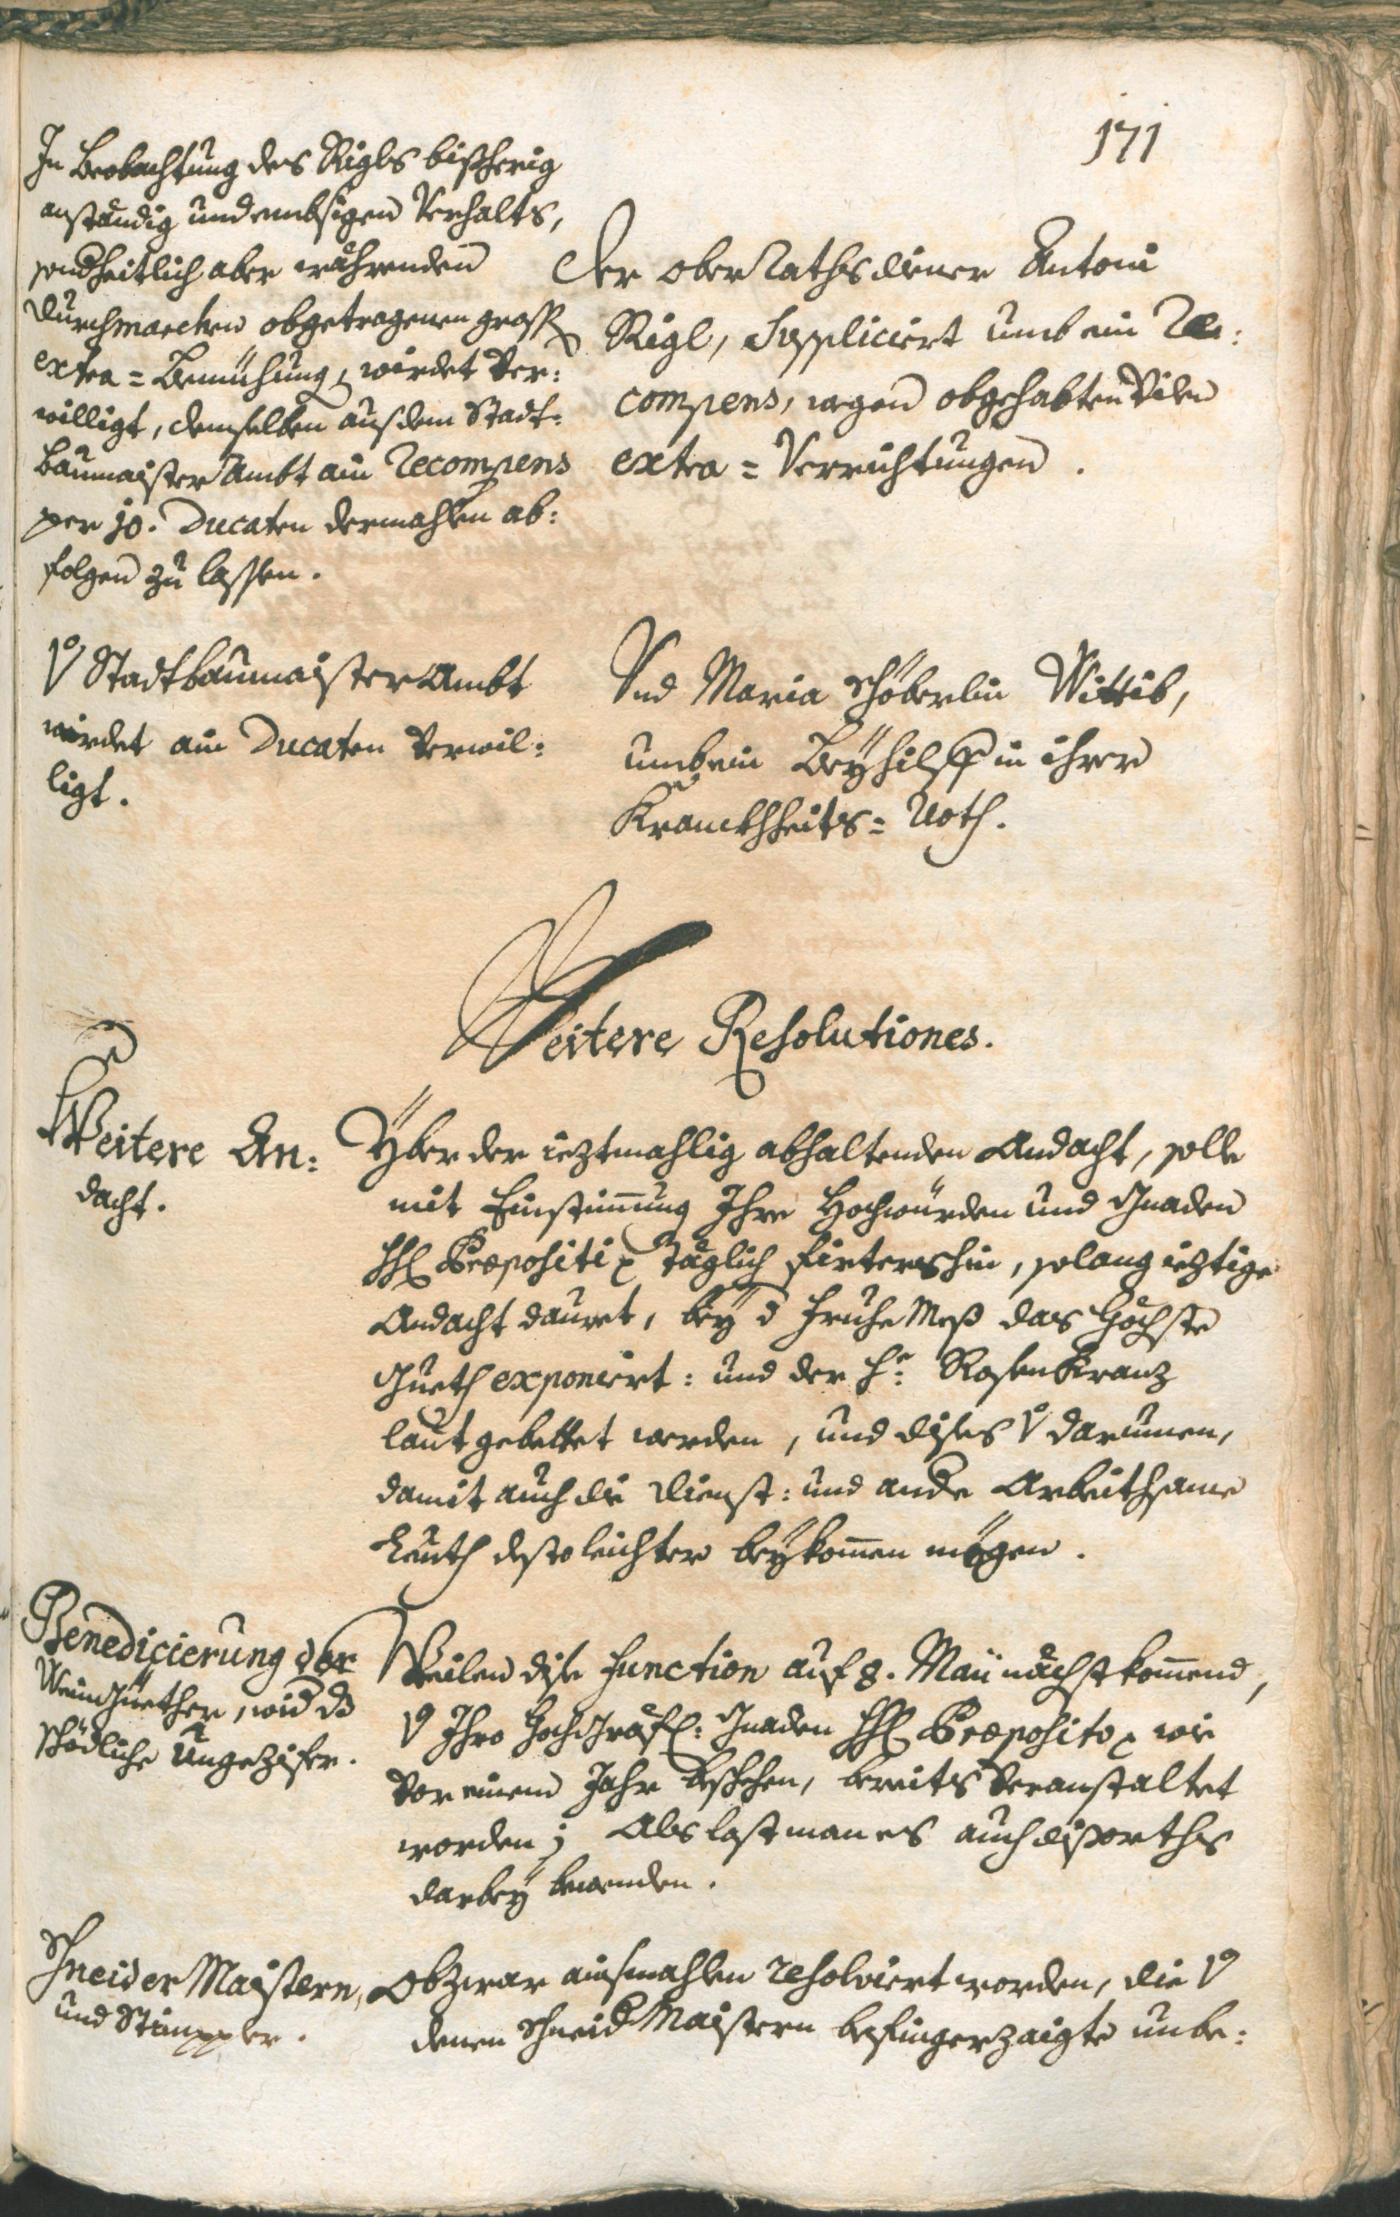 171
In Beobachtung des Rigls bißherig
anständig und embsigen Verhalts,
sondheitlich aber währenden
Durchmarchen obgetragenen gross
extra = Bemühung, wirdet Ver:
willigt, demselben aus dem Stadt:
baumaister Ambt ain Recompens
per 10. Ducaten dermahlen ab:
folgen zu lassen.
Der ober Rathsdiener Antoni
Rigl, Suppliciert umb ein Re:
compens, wegen obgehabten Vilen
extra = Verrichtungen.
V Stadtbaumaister Ambt
wirdet ain Ducaten Verwil:
ligt.
Vnd Maria Schöberlin Wittib,
umb ein Beÿhilff in ihrer
Kranckhheits = Noth.
Weitere Resolutiones.
Weitere An:
dacht.
Ÿber der ieztmahlig abhaltenden Andacht, solle
mit Einstimmung Ihre Hochwürden und Gnaden
HH Præpositi täglich firtershin, solang ieztige
Andacht dauret, beÿ d Fruhe Meß das höchste
Gueth exponiert: und der H: Rosenkranz
laut gebettet werden, und dises V darumen,
damit auch die Dienst: und ande Arbeithsame
Leuth desto leichter beÿkommen mögen.
Benedicierung der
Weingüether, wid ds
schödliche Ungezifer.
Weilen dise Function auf 8. Maii nächstkommend,
V Ihro Hochgräfl: Gnaden HH Præposito wie
Vor einem Jahr beschehen, bereits Veranstaltet
worden; Als last man es auch disorths
darbeÿ bewenden.
Schneider Maistern,
und Stimppler.
Obzwar ainsmahlen resolviert worden, die V
denen Schneid Maistern befingerzaigte unbe: